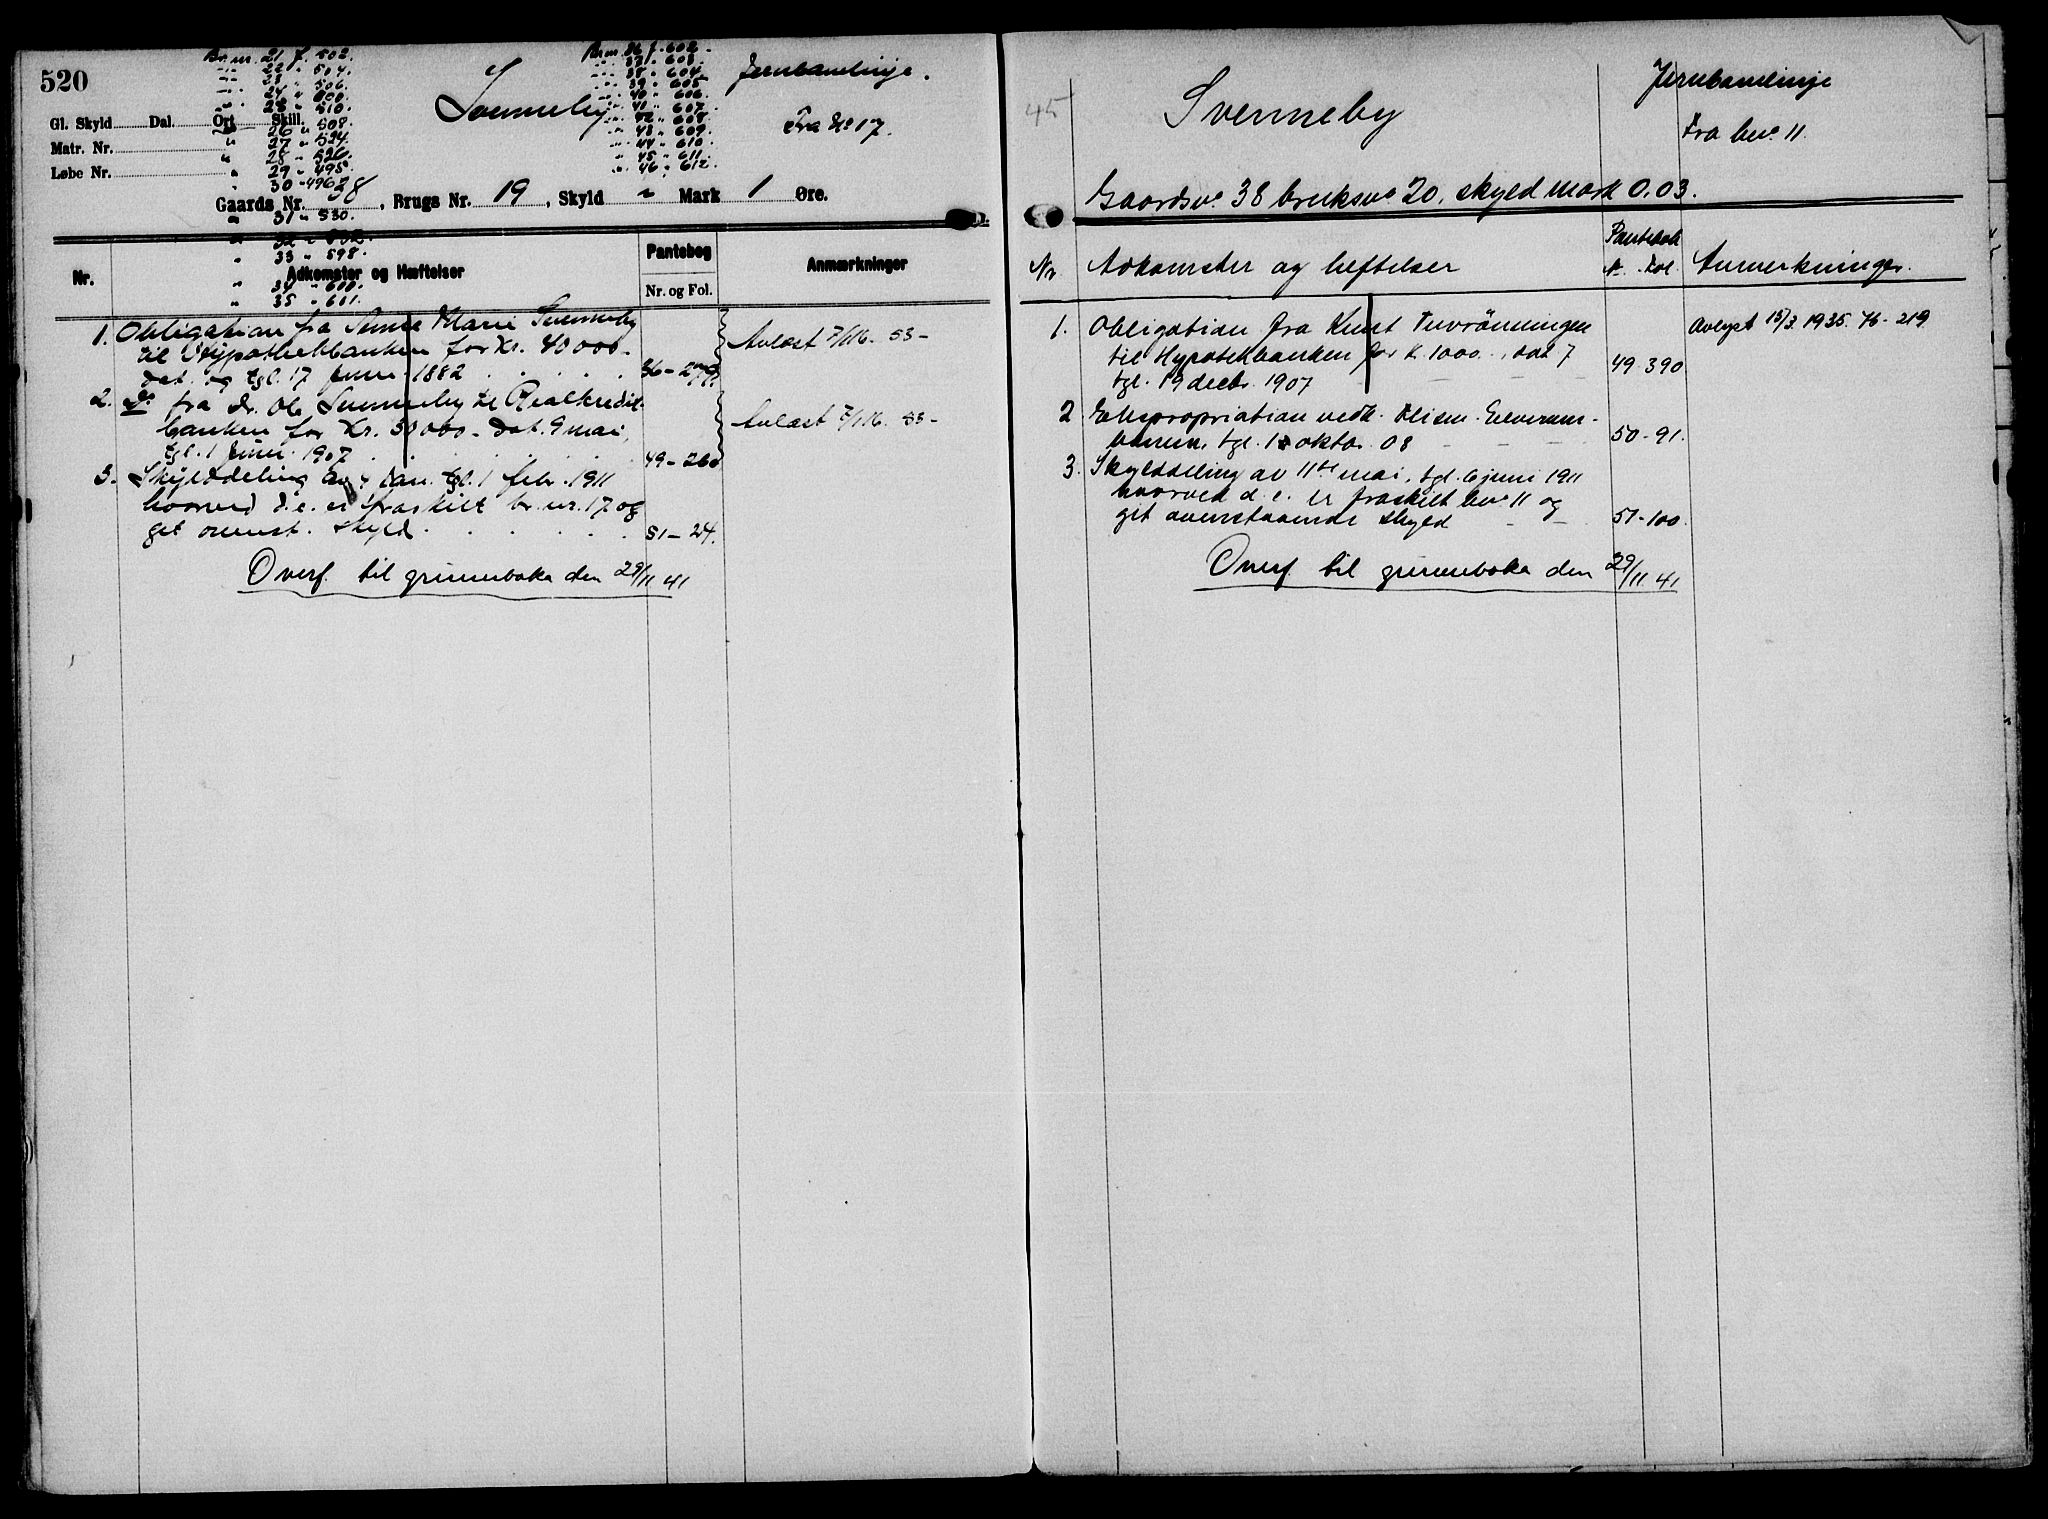 520
Br.nr. 21 f. 502.
" 22 " 504.
" 23 " 506.
" 24 " 600.
" 25 " 510.
" 26 " 508.
" 27 " 524
" 28 " 526.
" 29 " 495.
" 30 " 496
" 31 " 530.
" 32 " 502.
" 33 " 598.
" 34 " 600.
" 35 " 601.
Br.nr. 36 f. 602
" 37 " 603.
" 38 " 604
" 39 " 605
" 40 " 606.
" 41 " 607.
" 42 " 608
" 43 " 609.
" 44 " 610.
" 45 " 611.
" 46 " 612.
Svenneby
Jernbanelinje.
Fra No 17.
Gl. Skyld Dal. Ort Skill.
Matr. Nr.
Løbe Nr.
Gaards Nr. 38, Brugs Nr. 19, Skyld " Mark 1 Øre.
Nr. Adkomster og Hæftelser Pantebog Nr. og Fol. Anmærkninger
1. Obligation fra Anne Marie Svenneby
til Hypothekbanken for Kr. 40000-
dat. og tgl. 17 Juni 1882 36-279
Avlæst 7/1 16. 53-
2. Do fra Dr. Ole Svenneby til Realkredit-
banken for Kr. 30000- dat. 9 mai,
tgl. 1 Juni 1907 49-260
Avlæst 7/1 16. 53-
3. Skylddeling av 4 Jan. tgl. 1 febr. 1911
hvorved d.e. er fraskilt br.nr. 17 og
git ovenst. skyld. 51-24.
Overf. til grunnboka den 29/11 41
45
Svenneby
Jernbanelinje
Fra bno 11.
Gaardsno 38 bruksno 20, skyld mark 0.03.
Nr Adkomster og heftelser Pantebok N. Fol. Anmerkninger.
1. Obligation fra Knut Tuvrønningen
til Hypotekbanken for k. 1000.-, dat 7
tgl. 19 decbr. 1907 49-390
Avlyst 15/3 1935. 76-219
2 Ekspropriation vedk. Flisen-Elverum-
banen, tgl. 1 oktbr. 08 50-91.
3. Skylddeling av 11te mai, tgl. 6 juni 1911
hvorved d. e. er fraskilt bno 11 og
git ovenstaaende skyld 51-100.
Overf. til grunnboka den 29/11 41